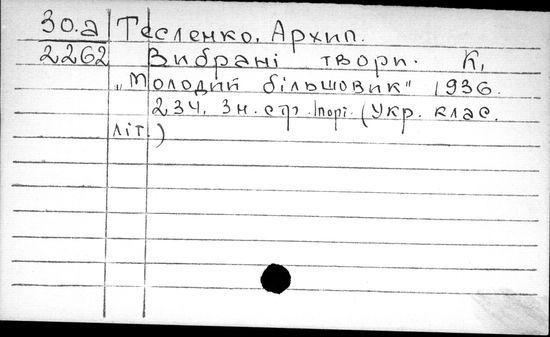 30.а Тесленко, Архип.
2262 Вибрані твори. К,
„Молодий більшовик" 1936.
234, 3н. стр. 1порт. (Укр. клас.
літ.)